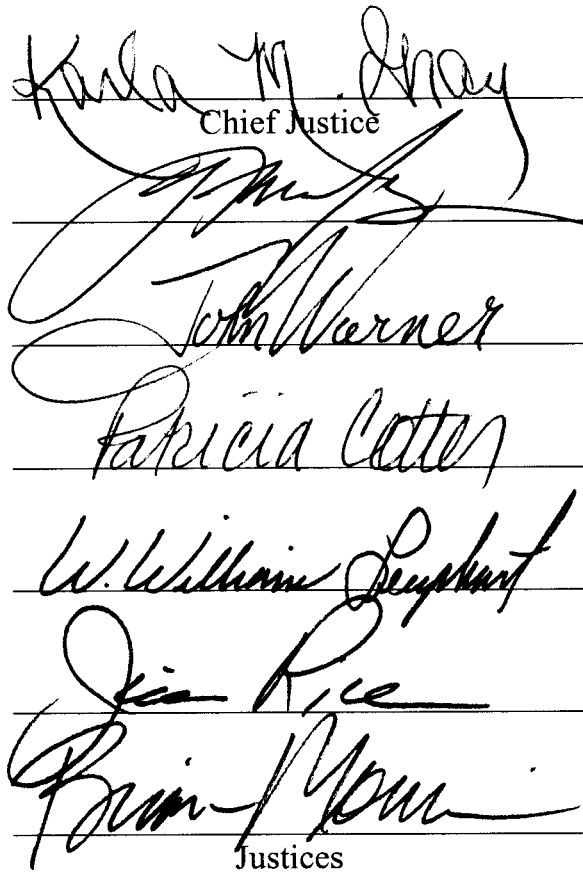 Karla M. Gray
Chief Justice
John Warner
Patricia Cotter
W. William Leaphart
Jim Rice
Brian Morris
Justices